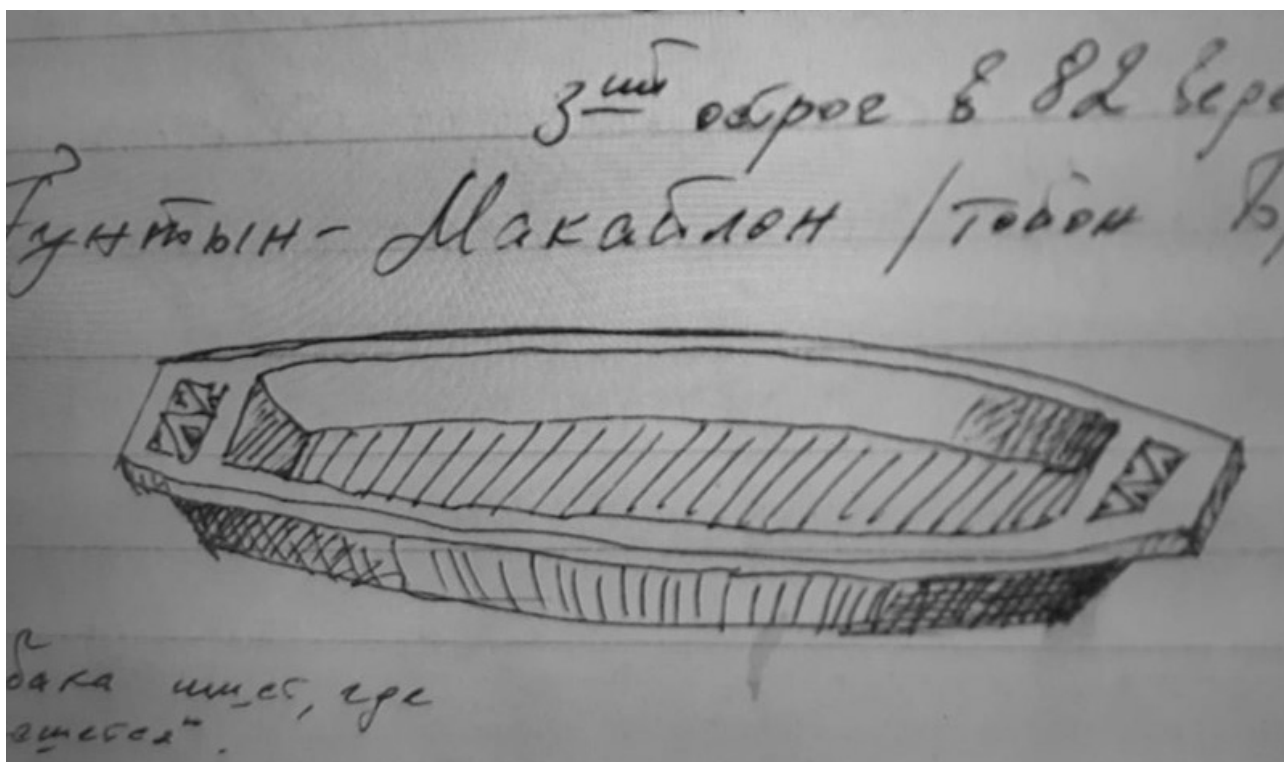 3ий острог в 82 вер
Гунтын- Макайлон / тойон
бака ищет, где